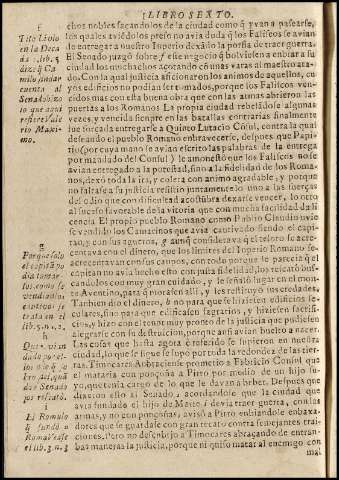 LIBRO SEXTO.
f
Tito Livio
en la Deca
da .lib.5
dize q Ca
milo, ha
cuenta al
Senado hizo
lo que aqui
refiere Vale
rio Maxi-
mo.
g
Porque solo
el capitã po
dia tomar-
los, como se
vendian los
captivos se
trata en el
lib.5.n.1.2.
h
Que
El Romulo
q fundó a
Roma vease
el lib.3.n.3
chos nobles sacandolos de la ciudad como q yvan a pasearse,
los quales aviédolos preso no avia duda q los Faliscos se avian
de entregar a nuestro Imperio dexãdo la porfia de traer guerra.
El Senado juzgó sobre f este negocio q bolviessen a enbiar a su
ciudad los muchachos açotando cõ unas varas al maestro ata-
do. Con la qual justicia aficionaron los animos de aquellos, cu-
yos edificios no podian ser tomados, porque los Faliscos ven-
cidos mas con esta buena obra que con las armas abrieron las
puertas a los Romanos. La propia ciudad rebelãdose algunas
vezes, y vencida sienpre en las batallas contrarias finalmente
fue forçada entregarse a Quinto Lutacio Cõsul, contra la qual
deseando el pueblo Romano enbravecerse, despues que Papi-
rio (por cuya mano se avian escrito las palabras de la entrega
por mandado del Consul) le amonestó que los Faliscos no se
avian entregado a la potestad, sino a la fidelidad de los Roma-
nos, dexó toda la ira, y colera con animo agradable, y porque
no faltase a su justicia resistió juntamente lo uno a las fuerças
del odio que con dificultad acostũbra dexarse vencer, lo otro
al suceso favorable de la vitoria que con mucha facilidad da li
cencia. El propio pueblo Romano como Publio Claudio uvie
se vendido los Camarinos que avia cautivado siendo el capi-
tan, g con sus agueros, g aunq consideravа q el tesoro se acre-
centava con el dinero, que los limites del Imperio Romano se
acrecentavan con sus canpos, con todo porque le parecia q el
capitan no avia hecho esto con justa fidelidad, los rescató bus-
candolos con muy gran cuidado, y le señaló lugar en el mon-
te Aventino, para q morasen alli, y les restituyó sus eredades,
Tanbien dio el dinero, h no para que se hiziesen edificios se-
culares, sino para que edificasen sagrarios, y hiziesen sacrifi-
cios, y hizo con el tenor muy pronto de la justicia que pudiesen
alegrarse con su destruicion, porque asi avian buelto a nacer.
Las cosas que hasta agora è referido se supieron en nuestra
ciudad, lo que se sigue se supo por toda la redondez de las tier-
ras. Timocares Anbraciense prometio a Fabricio Consul que
el mataria con ponçoña a Pirro por medio de un hijo su-
yo, que tenia cargo de lo que le davan a bever. Despues que
dixeron esto al Senado, acordandose que la ciudad que
avia fundado el hijo de Marte i devia traer guerra, con las
armas, y no con ponçoñas, avisó a Pirro enbiandole enbaxa-
dores que se guardase con gran recato contra semejantes trai-
ciones. Pero no descubrio a Timocares abraçando de entran-
bas maneras la justicia, porque ni quiso matar al enemigo con
mal